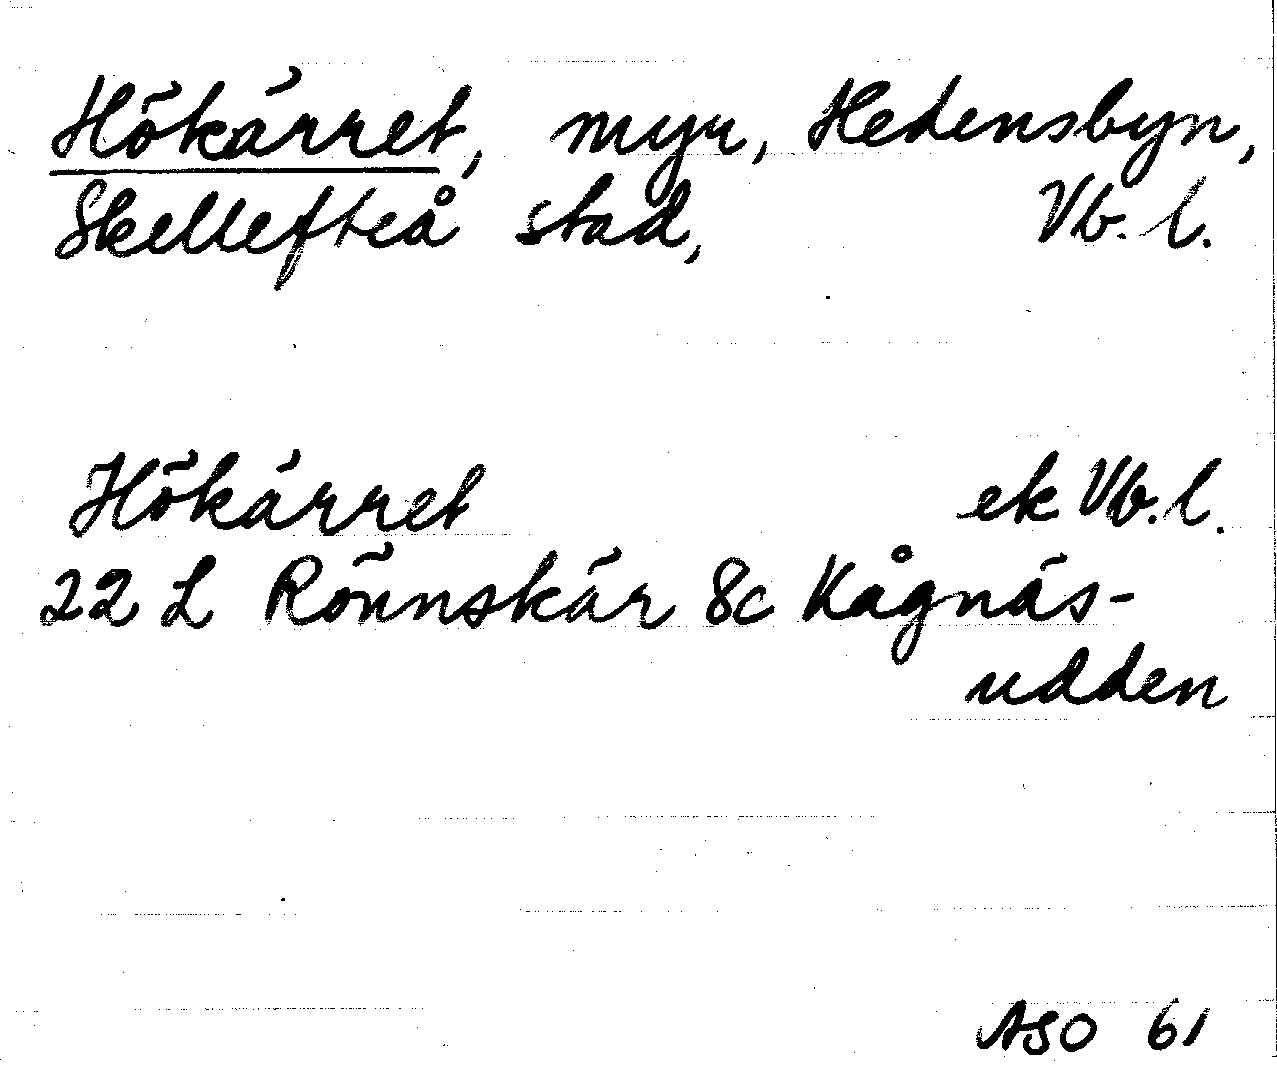 Hökärret, myr, Hedensbyn,
Skellefteå stad, Vb. l.
Hökärret ek Vb. l.
22 L Rönnskär 8c Kågnäs-
udden
ASO 61